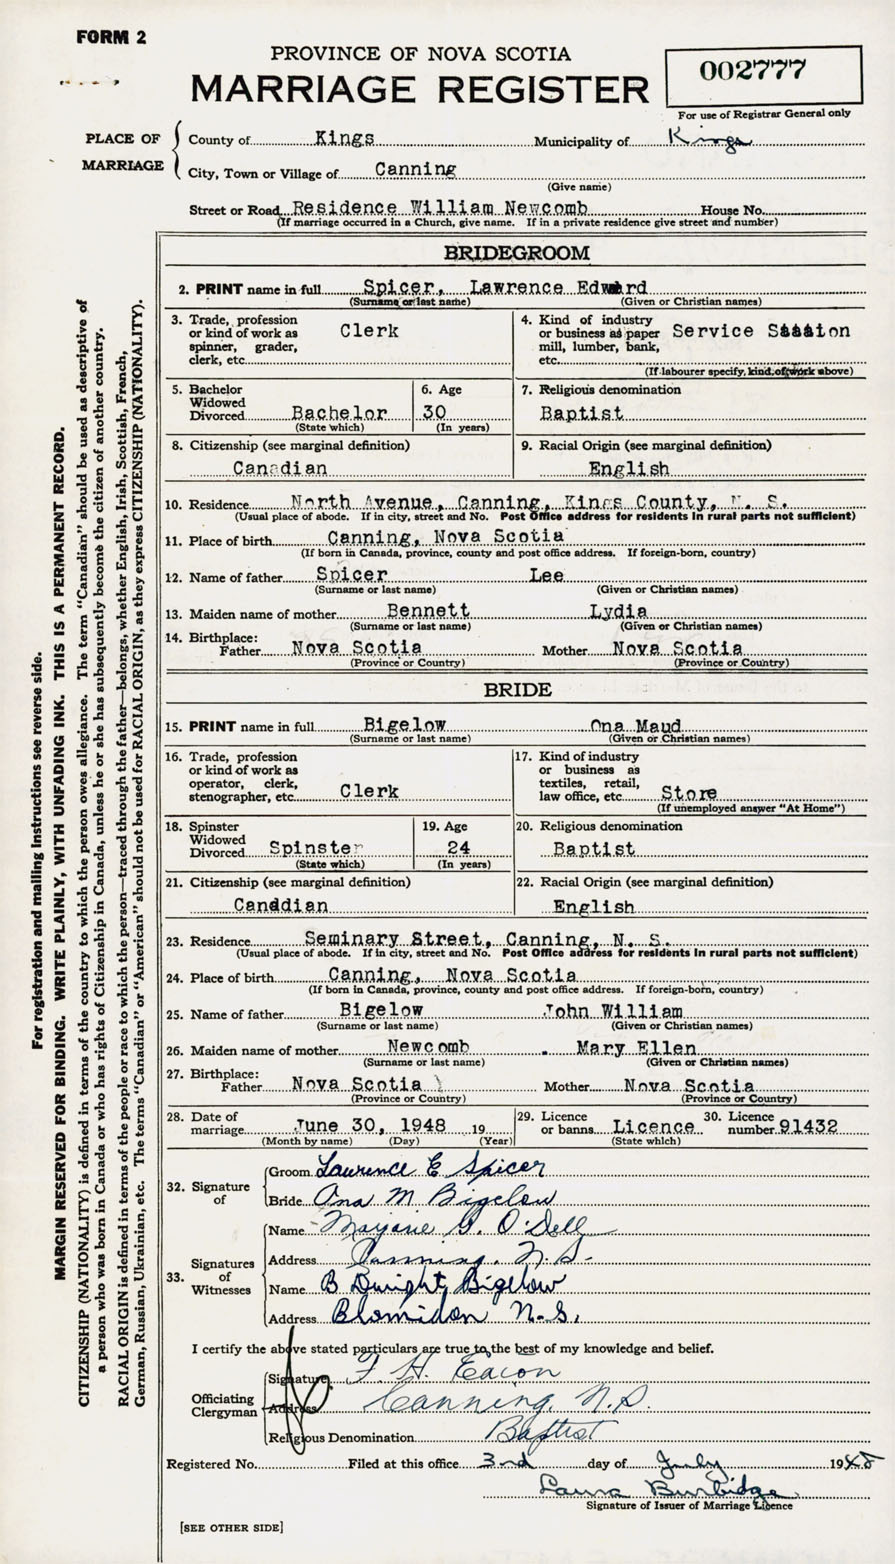 FORM 2
PROVINCE OF NOVA SCOTIA
MARRIAGE REGISTER
002777
For use of Registrar General only
PLACE OF MARRIAGE
County of Kings Municipality of Kings
City, Town or Village of Canning
(Give name)
Street or Road Residence William Newcomb House No.
(If marriage occurred in a Church, give name. If in a private residence give street and number)
BRIDEGROOM
2. PRINT name in full Spicer, Lawrence Edward
(Surname or last name) (Given or Christian names)
3. Trade, profession or kind of work as spinner, grader, clerk, etc. Clerk
4. Kind of industry or business as paper mill, lumber, bank, etc. Service Station
(If labourer specify, kind of work above)
5. Bachelor Widowed Divorced Bachelor
(State which)
6. Age 30
(In years)
7. Religious denomination
Baptist
8. Citizenship (see marginal definition)
Canadian
9. Racial Origin (see marginal definition)
English
10. Residence North Avenue, Canning, Kings County, N. S.
(Usual place of abode. If in city, street and No. Post Office address for residents in rural parts not sufficient)
11. Place of birth Canning, Nova Scotia
(If born in Canada, province, county and post office address. If foreign-born, country)
12. Name of father Spicer Lee
(Surname or last name) (Given or Christian names)
13. Maiden name of mother Bennett Lydia
(Surname or last name) (Given or Christian names)
14. Birthplace:
Father Nova Scotia Mother Nova Scotia
(Province or Country) (Province or Country)
BRIDE
15. PRINT name in full Bigelow Ona Maud
(Surname or last name) (Given or Christian names)
16. Trade, profession or kind of work as operator, clerk, stenographer, etc. Clerk
17. Kind of industry or business as textiles, retail, law office, etc. Store
(If unemployed answer "At Home")
18. Spinster Widowed Divorced Spinster
(State which)
19. Age
24
(In years)
20. Religious denomination
Baptist
21. Citizenship (see marginal definition)
Canadian
22. Racial Origin (see marginal definition)
English
23. Residence Seminary Street, Canning, N. S.
(Usual place of abode. If in city, street and No. Post Office address for residents in rural parts not sufficient)
24. Place of birth Canning, Nova Scotia
(If born in Canada, province, county and post office address. If foreign-born, country)
25. Name of father Bigelow John William
(Surname or last name) (Given or Christian names)
26. Maiden name of mother Newcomb Mary Ellen
(Surname or last name) (Given or Christian names)
27. Birthplace:
Father Nova Scotia Mother Nova Scotia
(Province or Country) (Province or Country)
28. Date of marriage June 30, 1948 19
(Month by name) (Day) (Year)
29. Licence or banns Licence
(State which)
30. Licence number 91432
32. Signature of
Groom Lawrence E Spicer
Bride Ona M Bigelow
33. Signatures of Witnesses
Name Marjorie G. O'Dell
Address Canning, N.S.
Name B Dwight Bigelow
Address Blomidon N.S.
I certify the above stated particulars are true to the best of my knowledge and belief.
Officiating Clergyman
Signature F H. Eacon
Address Canning, N.S.
Religious Denomination Baptist
Registered No. Filed at this office 3rd day of July 1948
Laura Burbidge
Signature of Issuer of Marriage Licence
[SEE OTHER SIDE]
For registration and mailing Instructions see reverse side.
MARGIN RESERVED FOR BINDING. WRITE PLAINLY, WITH UNFADING INK. THIS IS A PERMANENT RECORD.
CITIZENSHIP (NATIONALITY) is defined in terms of the country to which the person owes allegiance. The term "Canadian" should be used as descriptive of
a person who was born in Canada or who has rights of Citizenship in Canada, unless he or she has subsequently become the citizen of another country.
RACIAL ORIGIN is defined in terms of the people or race to which the person—traced through the father—belongs, whether English, Irish, Scottish, French,
German, Russian, Ukrainian, etc. The terms "Canadian" or "American" should not be used for RACIAL ORIGIN, as they express CITIZENSHIP (NATIONALITY).